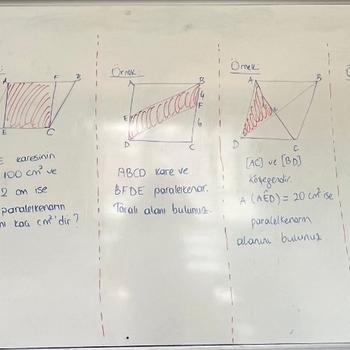 A F B
E C
E karesinin
100 cm² ve
2 cm ise
paralelkenarın
kaç cm² dir?
Örnek:
A B
4
E F
6
D C
ABCD kare ve
BFDE paralelkenar.
Taralı alanı bulunuz.
Örnek:
A B
E
D C
[AC] ve [BD]
köşegendir.
A(AED) = 20 cm² ise
paralelkenarın
alanını bulunuz